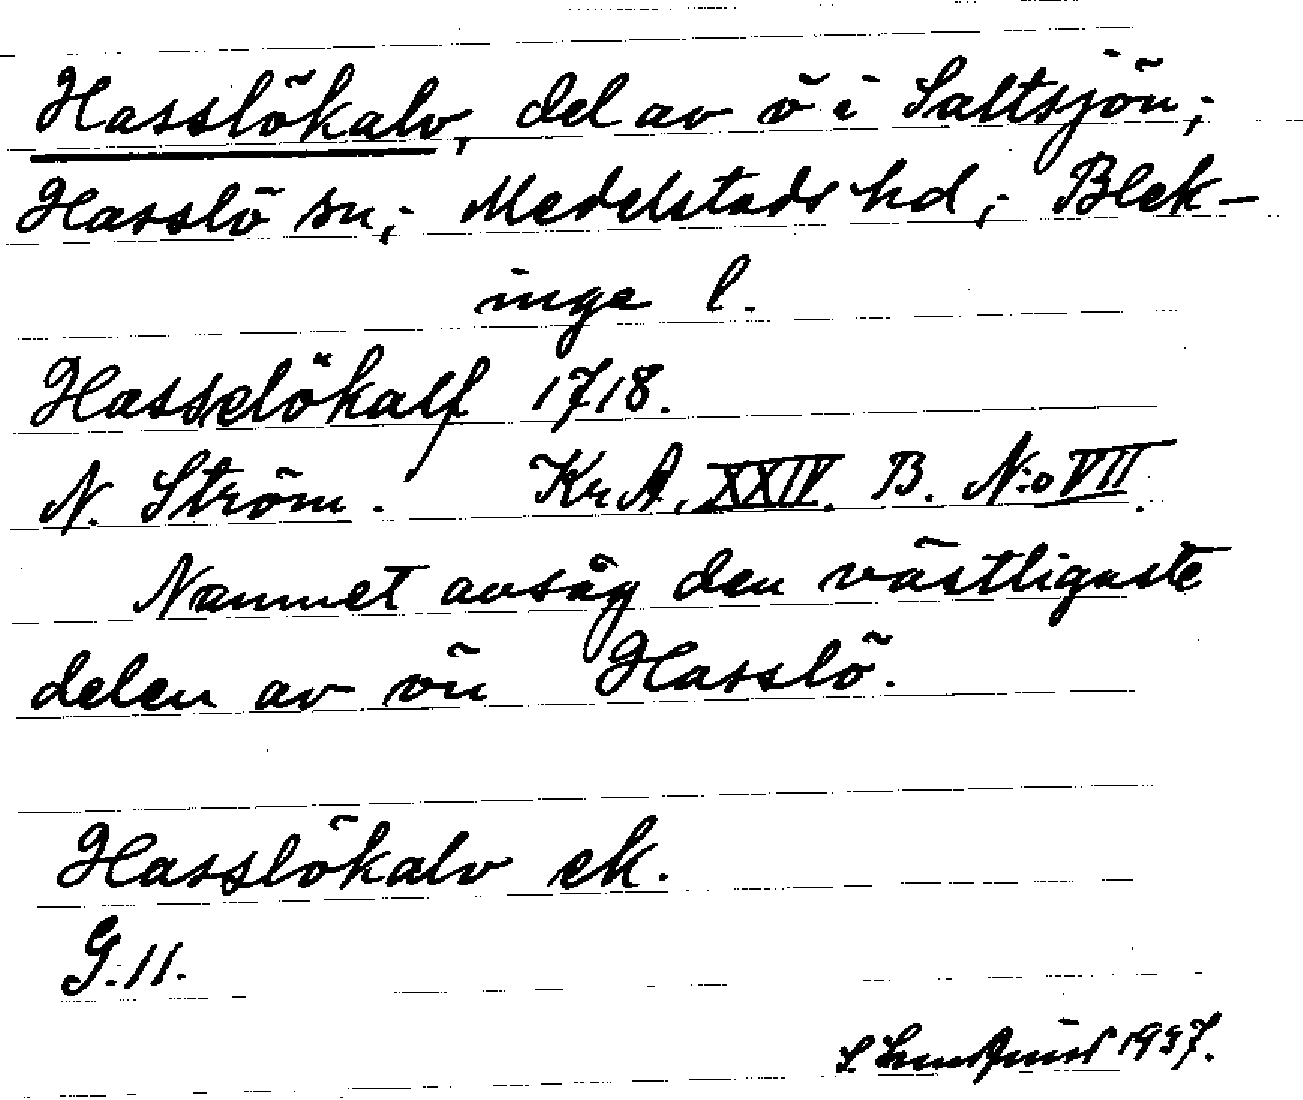 Hasslökalv, del av ö i Saltsjön,
Hasslö sn, Medelstads hd, Blek-
inge l.
Hasselökalf 1718.
N. Ström. Kr.A. XXIV. B. N:o VII.
Namnet avsåg den västligaste
delen av ön Hasslö.
Hasslökalv ek.
G. 11.
1937.